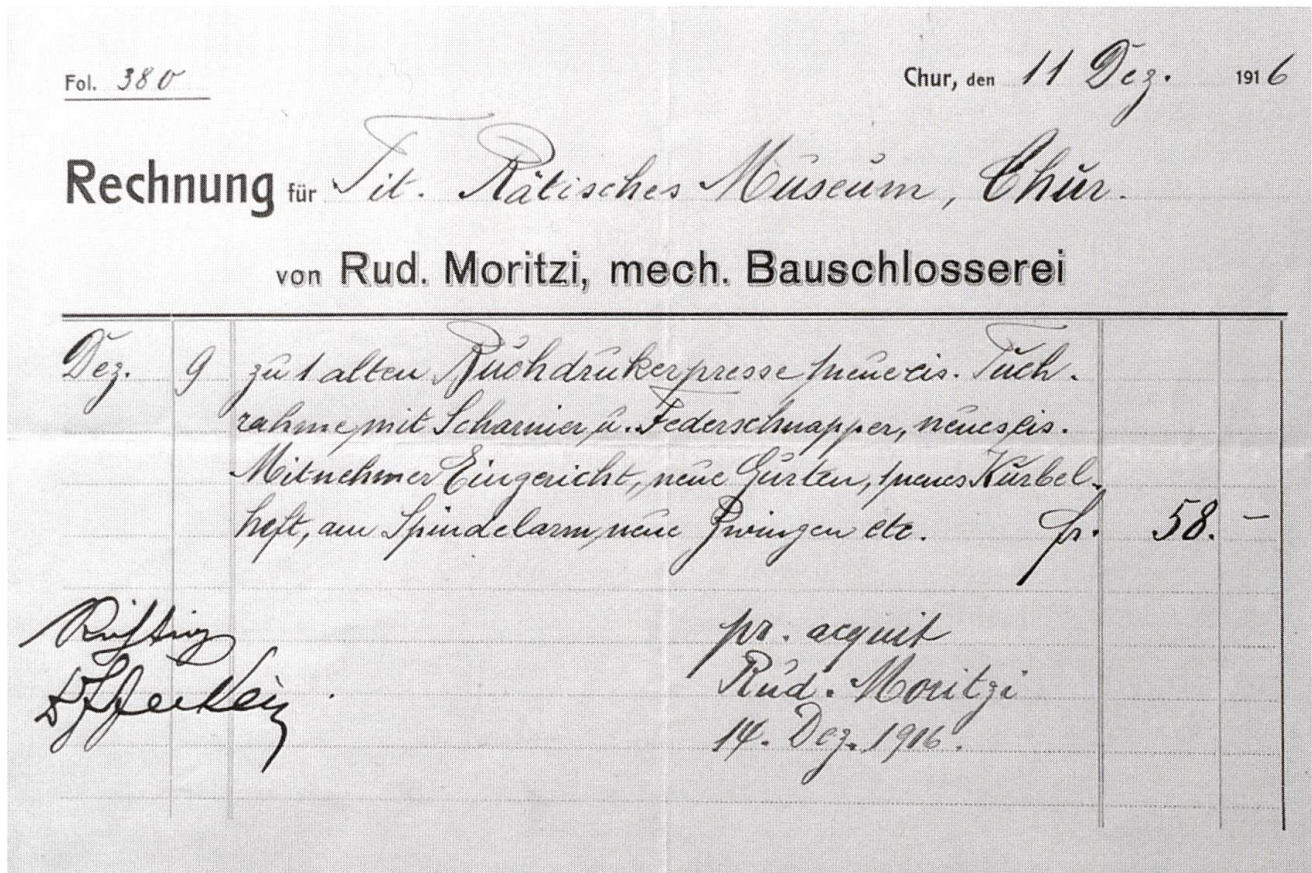 Fol. 380
Chur, den 11 Dez. 1916
Rechnung für Tit. Rätisches Museum, Chur.
von Rud. Moritzi, mech. Bauschlosserei
Dez. 9 zu 1 alten Buchdrukerpresse 1 neue eis. Tuch-
rahme mit Scharnier u. Federschnapper, neues eis.
Mitnehmer Eingericht, neue Gurten, 1 neues Kurbel-
heft, am Spindelarm, neue Zwingen etc. fr. 58. –
Richtig
pr. acquit
Rud. Moritzi
14. Dez. 1916.